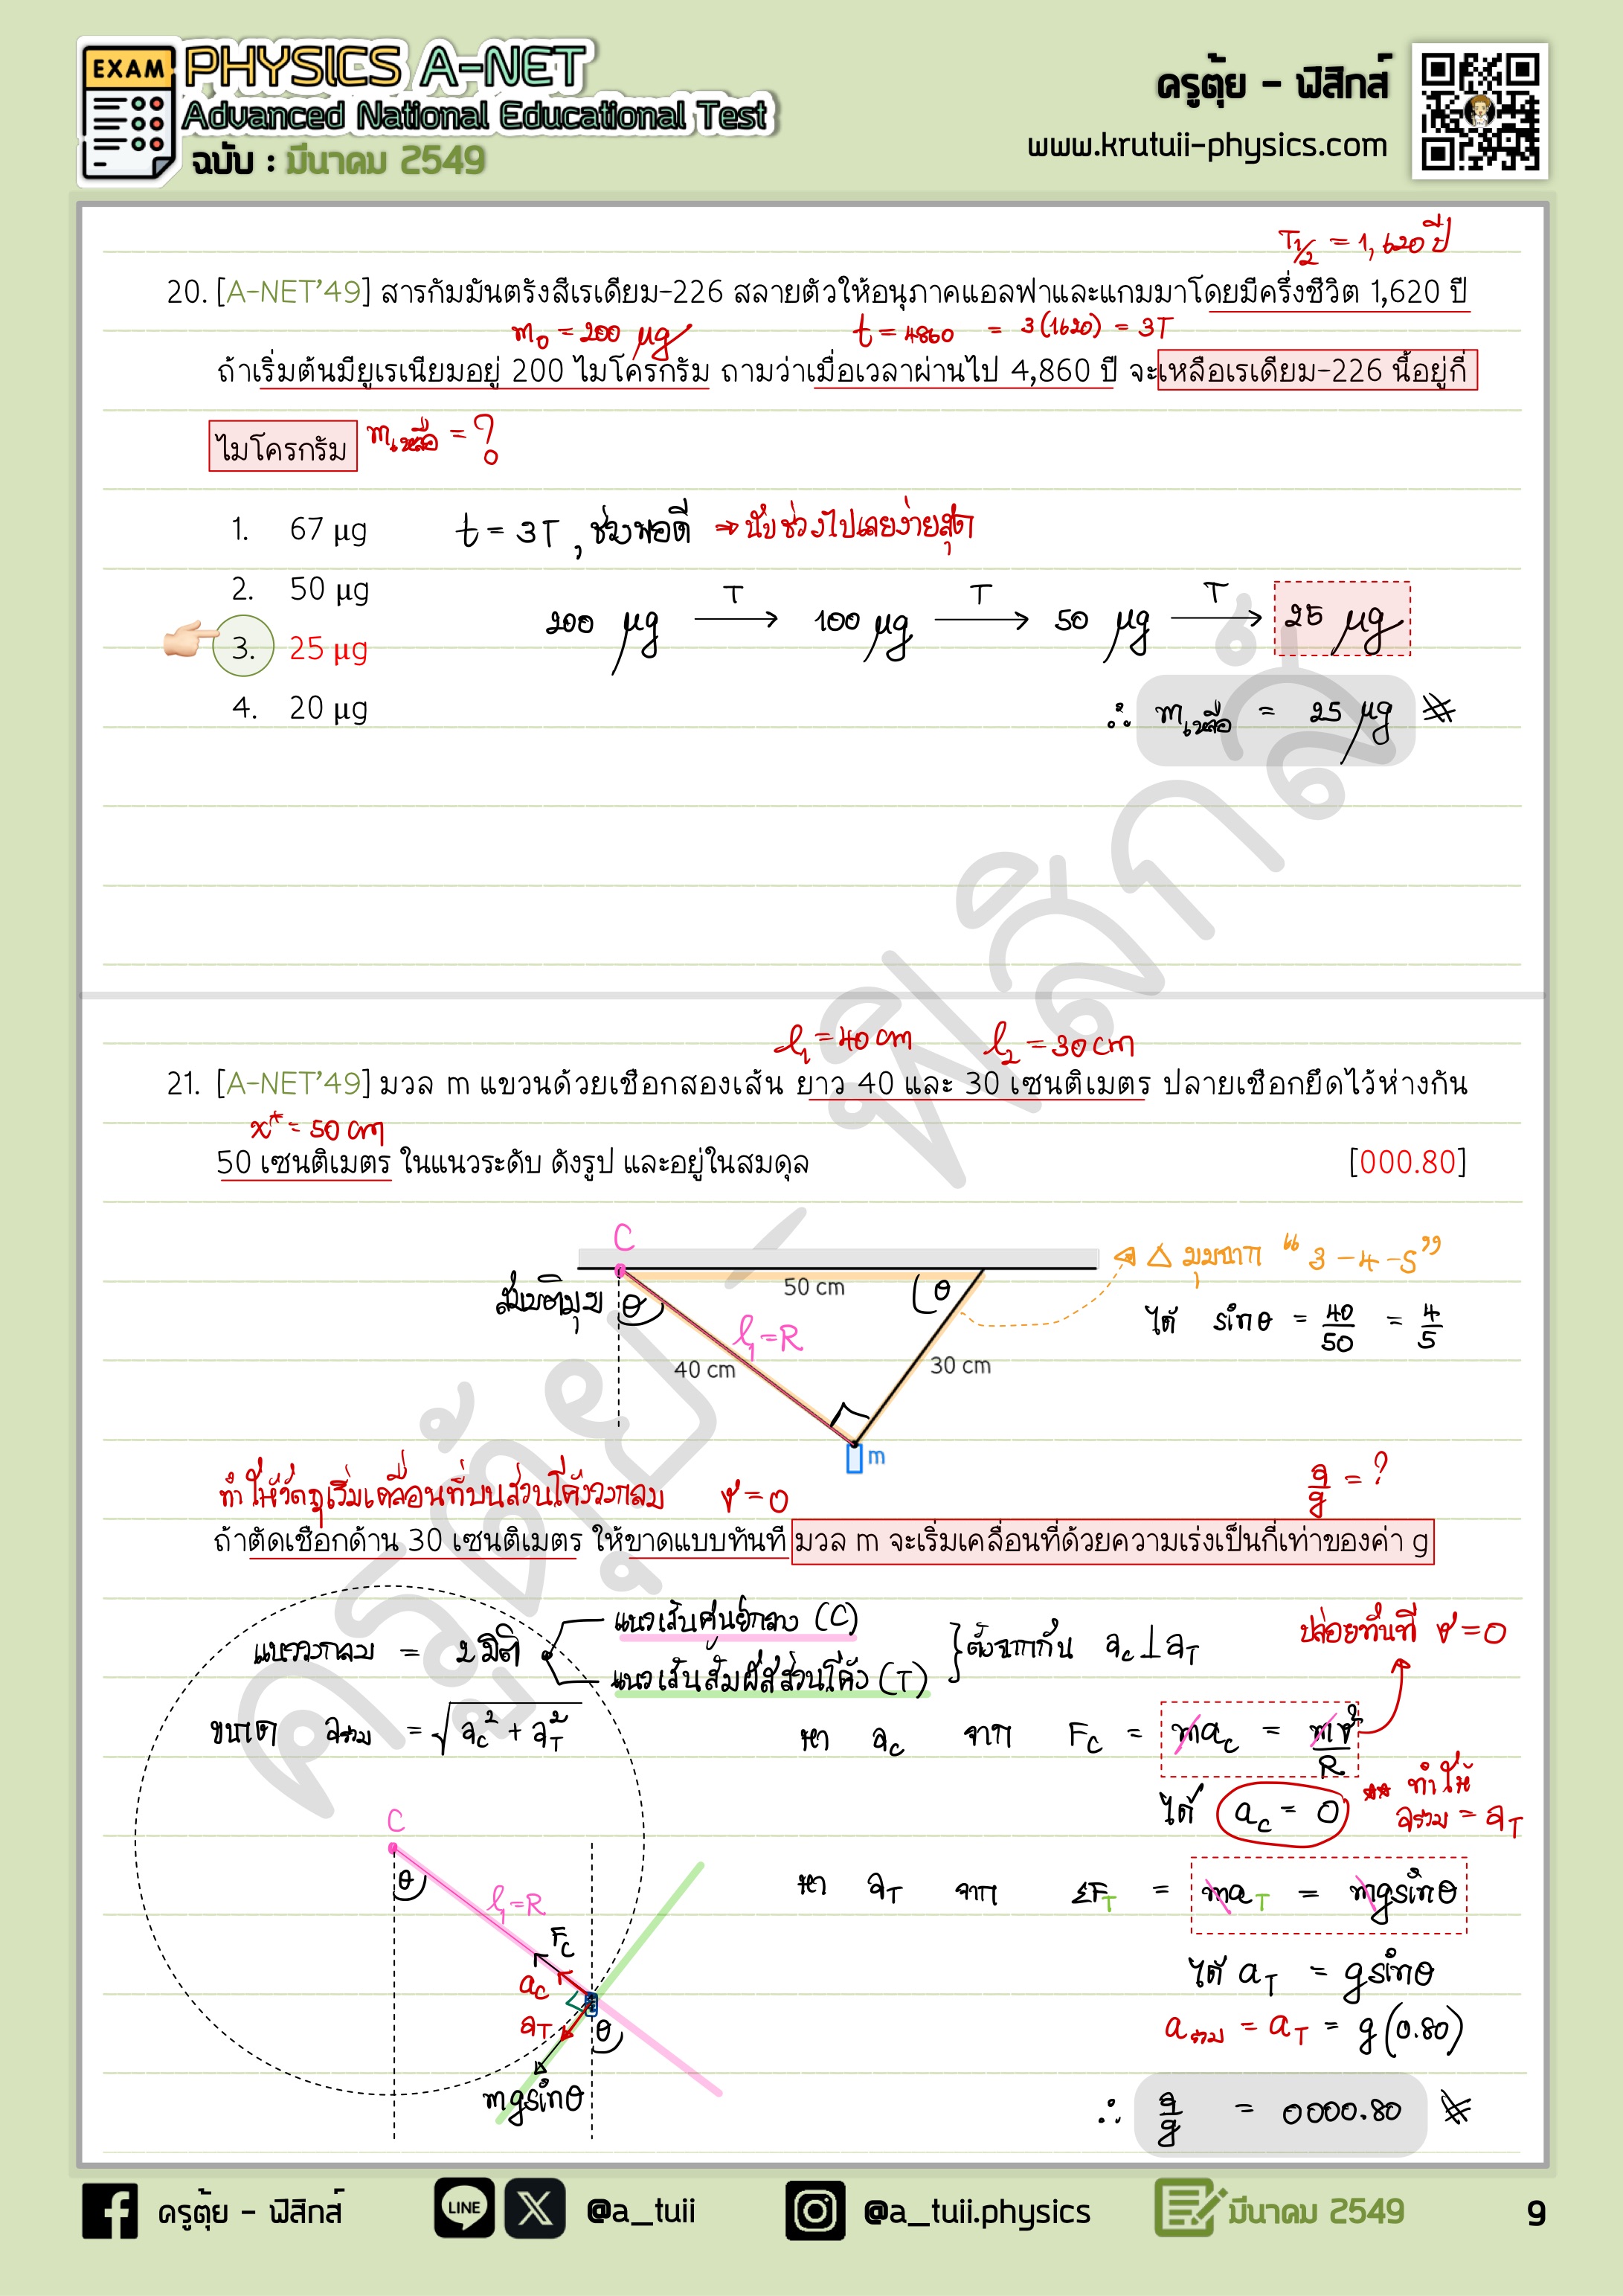 EXAM
PHYSICS A-NET
Advanced National Educational Test
ฉบับ : มีนาคม 2549
ครูตุ้ย - ฟิสิกส์
www.krutuii-physics.com
T1/2 = 1,620 ปี
20. [A-NET'49] สารกัมมันตรังสีเรเดียม-226 สลายตัวให้อนุภาคแอลฟาและแกมมาโดยมีครึ่งชีวิต 1,620 ปี
m0 = 200 µg t = 4860 = 3(1620) = 3T
ถ้าเริ่มต้นมียูเรเนียมอยู่ 200 ไมโครกรัม ถามว่าเมื่อเวลาผ่านไป 4,860 ปี จะเหลือเรเดียม-226 นี้อยู่กี่
ไมโครกรัม mเหลือ = ?
1. 67 µg t = 3T , ช่วงพอดี ⇒ นับช่วงไปเลยง่ายสุด
2. 50 µg
200 µg T → 100 µg T → 50 µg T → 25 µg
3. 25 µg
4. 20 µg
∴ mเหลือ = 25 µg
ครูตุ้ย - ฟิสิกส์
l1 = 40 cm l2 = 30 cm
21. [A-NET'49] มวล m แขวนด้วยเชือกสองเส้น ยาว 40 และ 30 เซนติเมตร ปลายเชือกยึดไว้ห่างกัน
x* = 50 cm
50 เซนติเมตร ในแนวระดับ ดังรูป และอยู่ในสมดุล [000.80]
C
50 cm θ
△ มุมฉาก "3-4-5"
สมมติมุม θ
l1 = R
ได้ sinθ = 40/50 = 4/5
40 cm
30 cm
m
ทำให้วัตถุเริ่มเคลื่อนที่บนส่วนโค้งวงกลม v = 0
a/g = ?
ถ้าตัดเชือกด้าน 30 เซนติเมตร ให้ขาดแบบทันที มวล m จะเริ่มเคลื่อนที่ด้วยความเร่งเป็นกี่เท่าของค่า g
แนววงกลม = 2 มิติ
แนวเส้นศูนย์กลาง (C)
แนวเส้นสัมผัสส่วนโค้ง (T)
ตั้งฉากกัน ac ⊥ aT
ปล่อยทันที v = 0
ขนาด aรวม = √(ac² + aT²)
หา ac จาก Fc = mac = mv²/R
ได้ ac = 0
** ทำให้
aรวม = aT
C
θ
l1 = R
Fc
ac
aT
θ
mgsinθ
หา aT จาก ΣFT = maT = mgsinθ
ได้ aT = gsinθ
aรวม = aT = g(0.80)
∴ a/g = 0000.80
ครูตุ้ย - ฟิสิกส์
LINE
@a_tuii
@a_tuii.physics
มีนาคม 2549
9